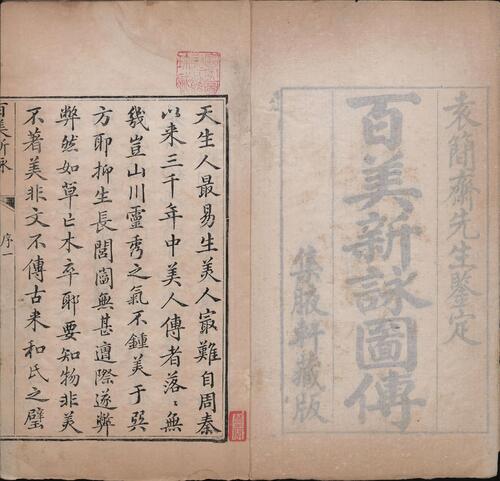 袁簡齋先生鑒定
百美新詠圖傳
集腋軒藏版
天生人最易生美人寂難自周秦
以來三千年中美人傳者落〻無
幾豈山川靈秀之氣不鍾美于巽
方耶抑生長閨闥無甚遭際遂弊
弊然如草亡木卒耶要知物非美
不著美非文不傳古来和氏之璧
百美新詠
序一